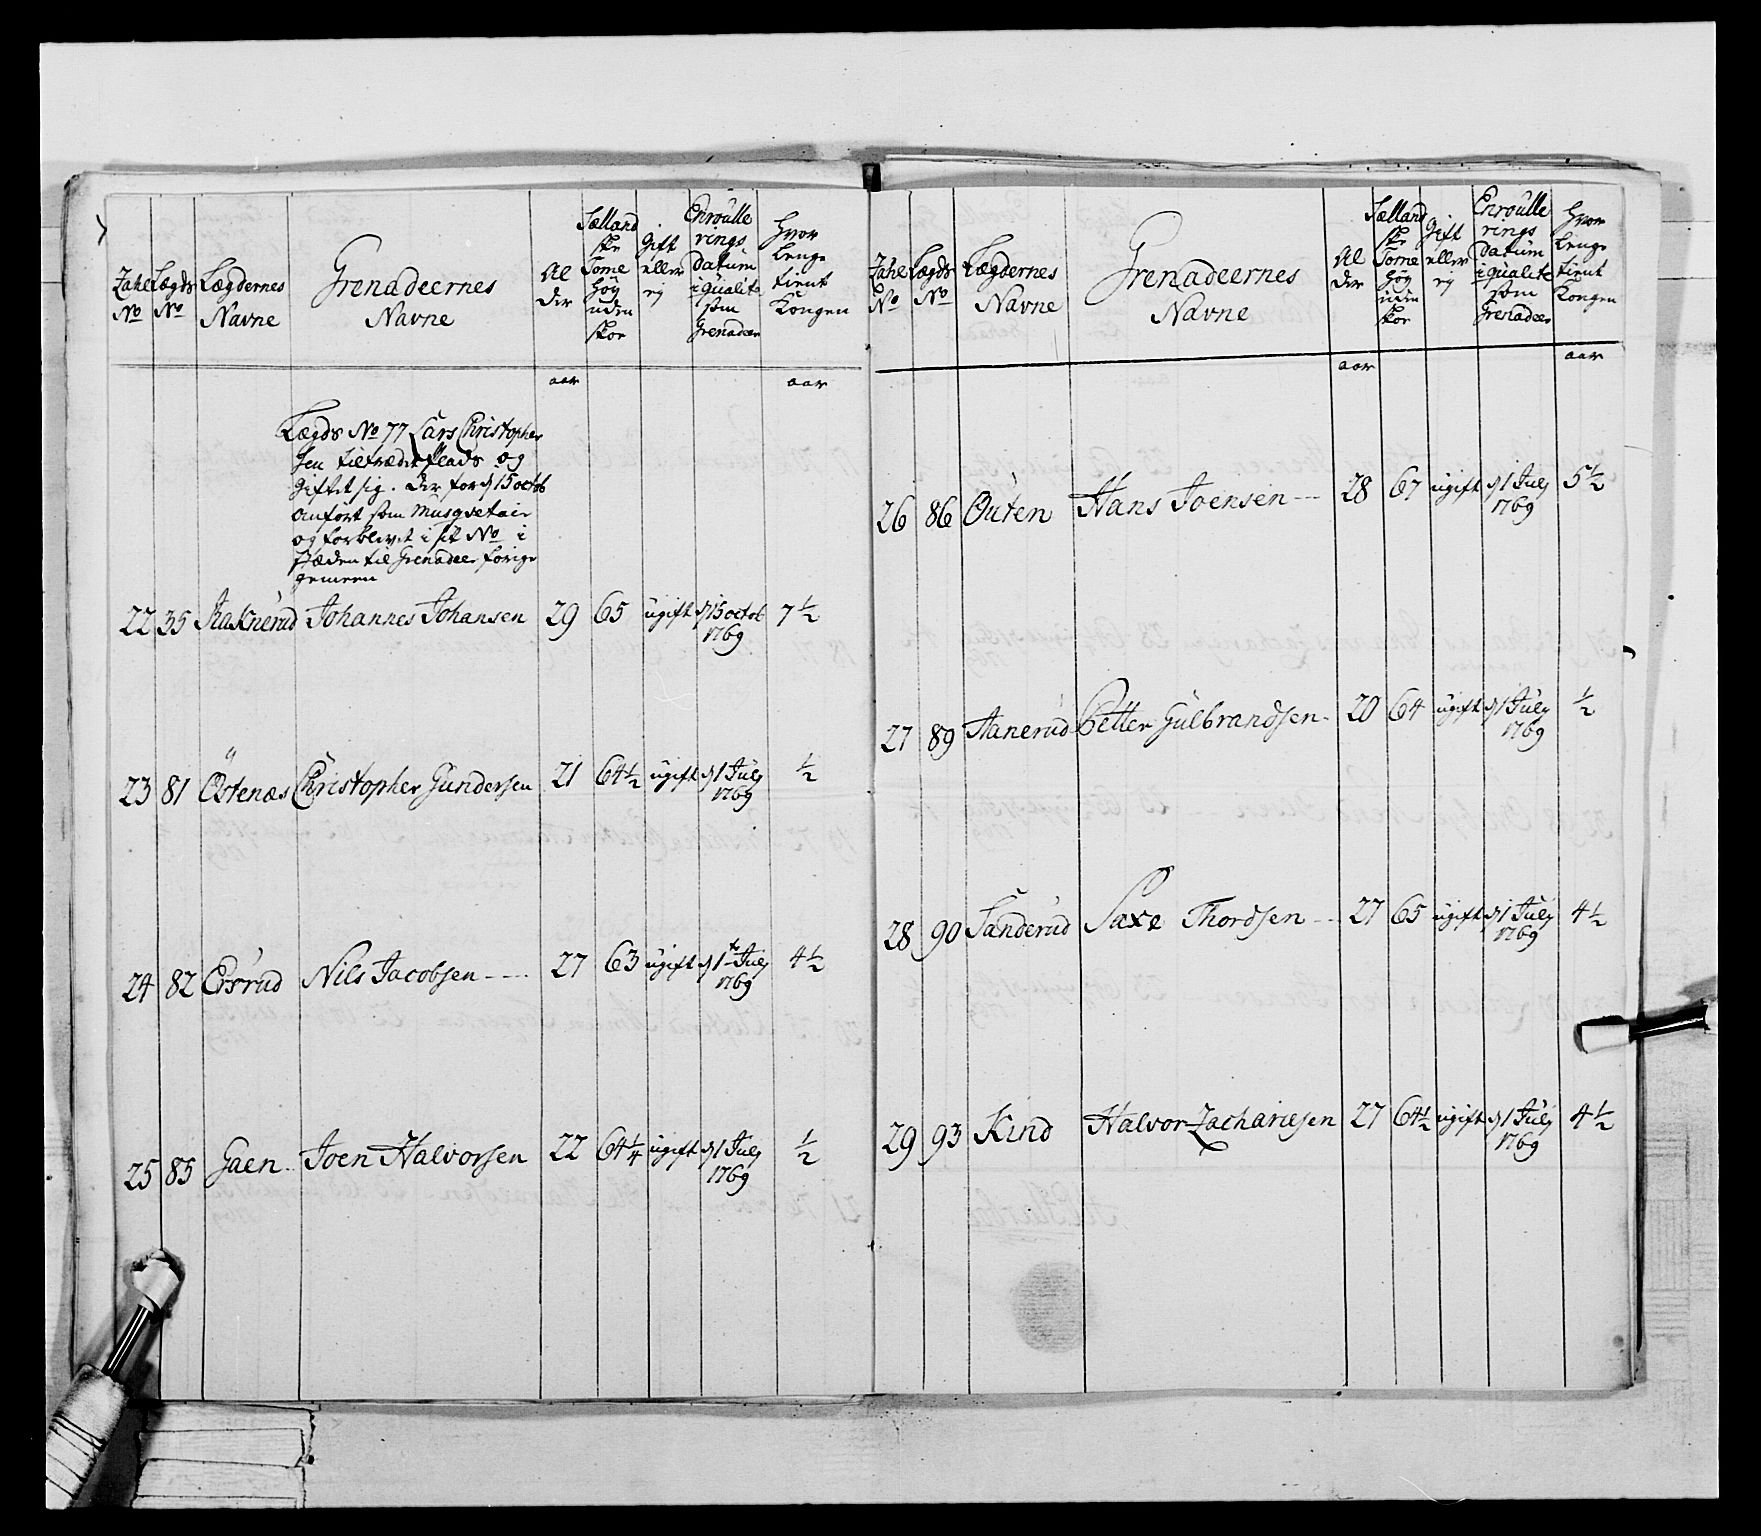 Zahl No | Lægds No | Lægdernes Navne | Grenadeernes Navne | Al der | Sællandske Tome Höy uden skoe | Gift eller ej | Enroullerings datum i qualite som Grenadeer | Hvor lenge tient Kongen
aar | aar
Lægds No 77 Lars Christopher
sen tiltrædet Plads og
Giftet sig. Der for d 15 octob
anfört som Musqvetair
og forblivet i sit No i
stæden til Grenadeer forige
gemeen
22 35 Raknerud Johannes Johansen 29 65 ugift d 15 octob 1769 7 1/2
23 81 Östenæs Christopher Gundersen 21 64 1/2 ugift d 1 July 1769 1/2
24 82 Ersrud Nils Jacobsen --- 27 63 ugift d 1te July 1769 4 1/2
25 85 Gaen Joen Halvorsen 22 64 1/4 ugift d 1 July 1769 1/2
Zahl No | Lægds No | Lægdernes Navne | Grenadeernes Navne | Al der | Sællandske Tome Höy uden skoe | Gift eller ej | Enroullerings datum i qualite som Grenadeer | Hvor lenge tient Kongen
aar | aar
26 86 Outen Hans Joensen -- 28 67 ugift d 1 July 1769 5 1/2
27 89 Aanerud Petter Gulbrandsen - 20 64 ugift d 1 July 1769 1/2
28 90 Sanderud Saxe Thordsen -- 27 65 ugift d 1 July 1769 4 1/2
29 93 Kind Halvor Zachariesen 27 64 1/2 ugift d 1 July 1769 4 1/2